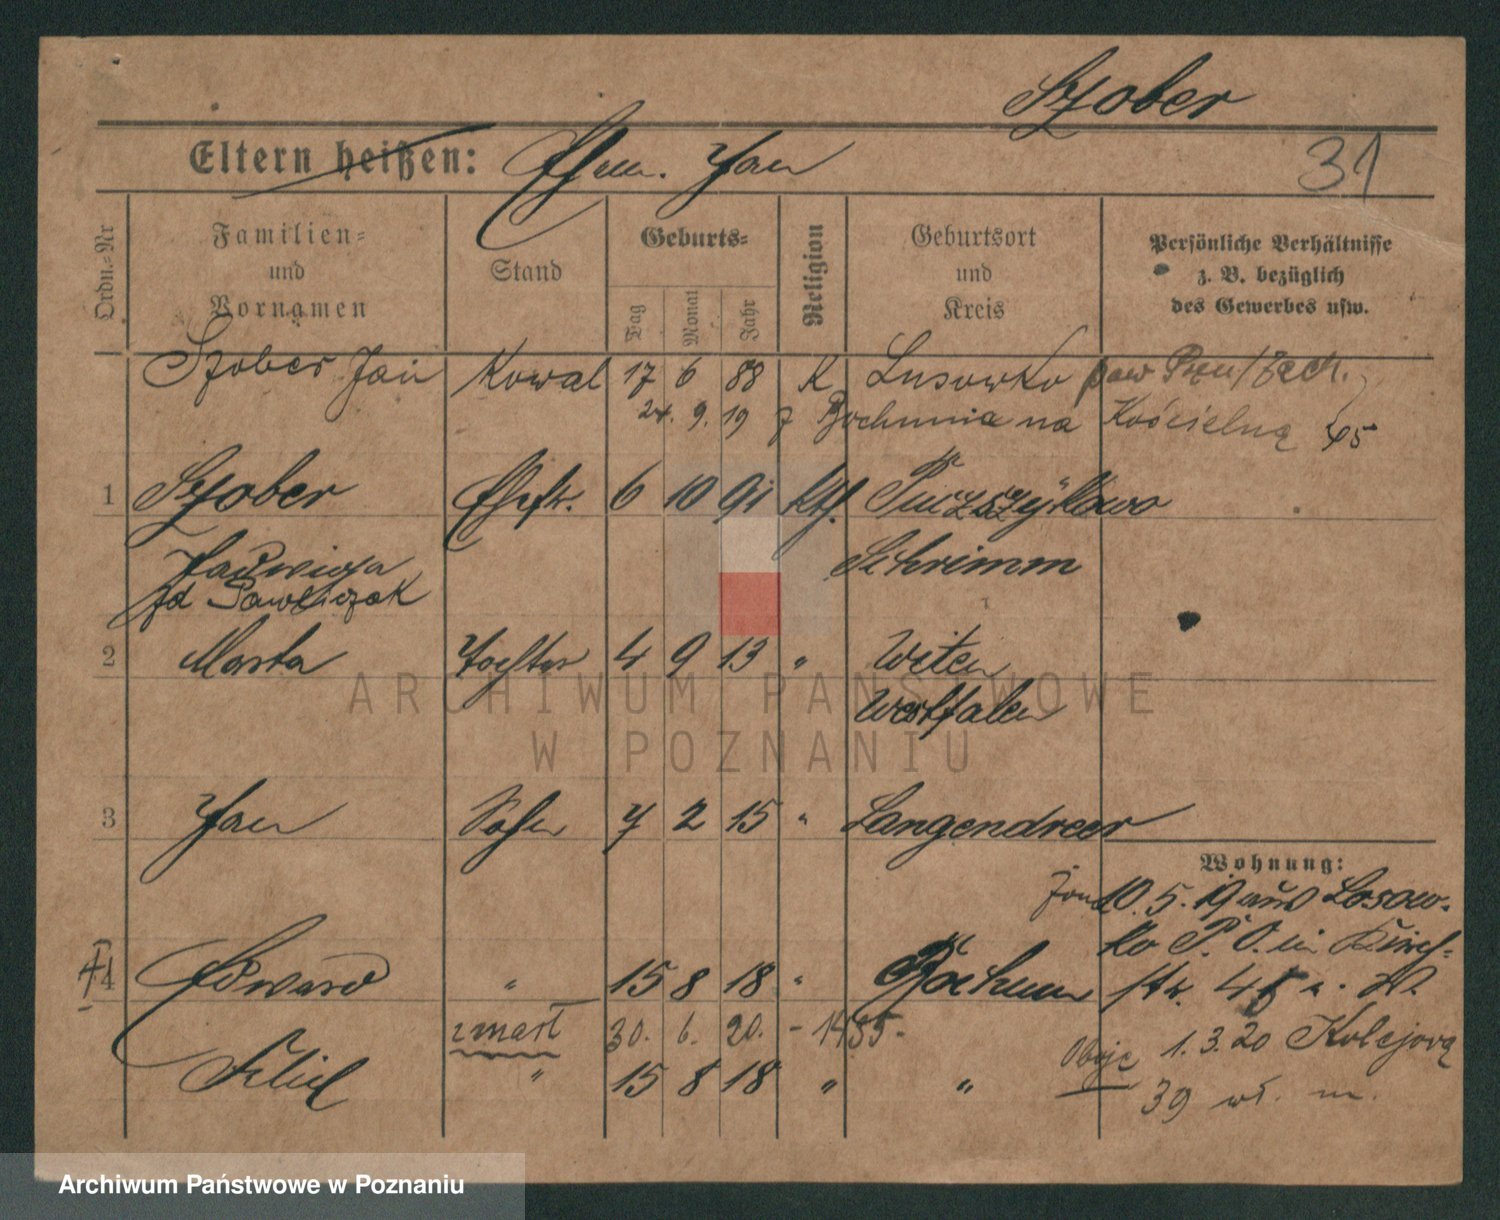 Szober
Eltern heißen: Ehem. Jan
31
Ordn.-Nr
Familien-
und
Vornamen
Stand
Geburts-
Tag
Monat
Jahr
Religion
Geburtsort
und
Kreis
Persönliche Verhältnisse
z. B. bezüglich
des Gewerbes usw.
Szober Jan Kowal 17 6 88 K Lusowko
24. 9. 19 z Bochumia na Kościelną 45
1 Szober Ehefr. 6 10 91 kth. Puszczykowo
Hadwiga Schrimm
Pawliczak
2 Marta Tochter 4 9 13 " Witen
Westfalen
3 Jan Sohn 7 2 15 " Langendreer
Wohnung:
10. 5. 19 aus Losow-
ko P. O. in Kirch-
4 Edward " 15 8 18 " Bochum str. 45
zmarł 30. 6. 20. - 1455-
oboje 1. 3. 20 Kolejową
" 15 8 18 " "
39 wł. m.
ARCHIWUM PAŃSTWOWE
W POZNANIU
Archiwum Państwowe w Poznaniu